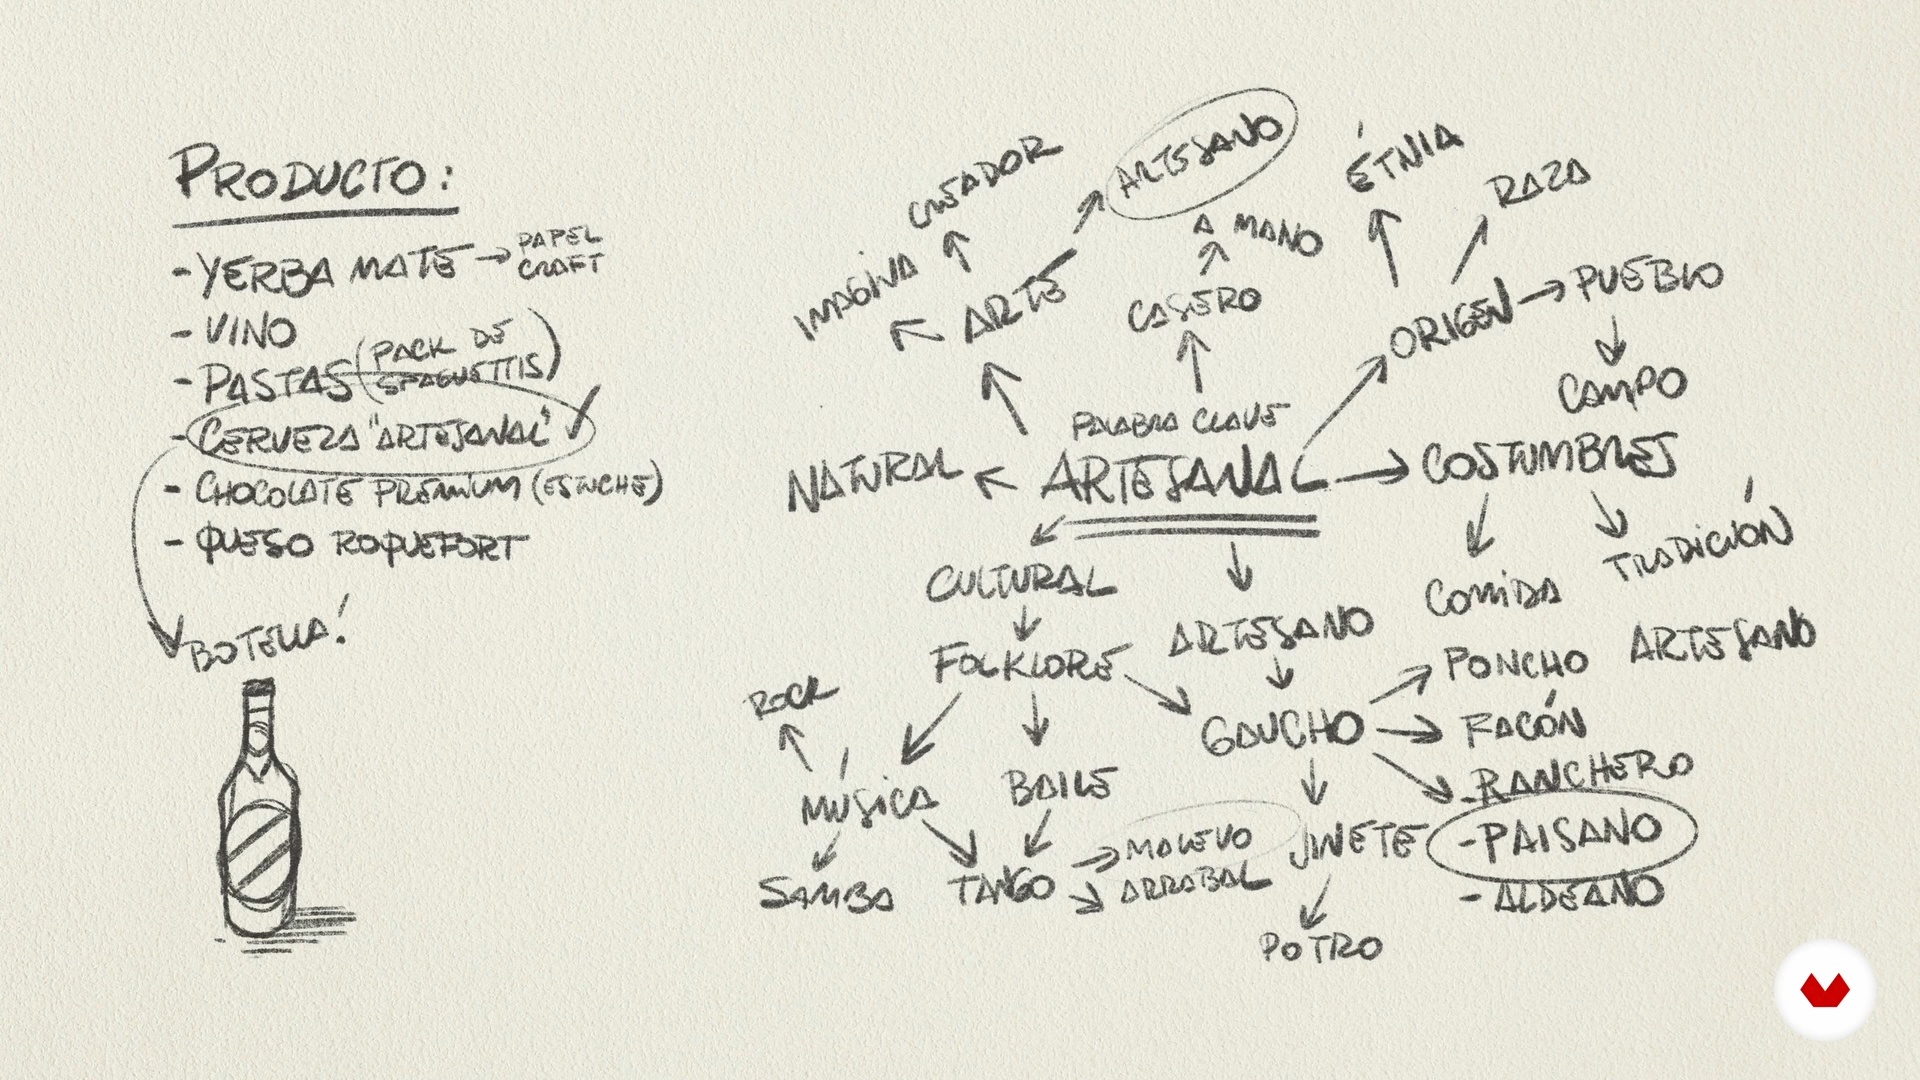 PRODUCTO:
- YERBA MATE → PAPEL CRAFT
- VINO
- PASTAS (PACK DE SPAGUETTIS)
- CERVEZA "ARTESANAL" ✓
- CHOCOLATE PREMIUM (ESTUCHE)
- QUESO ROQUEFORT
BOTELLA!
CREADOR
ARTESANO
ÉTNIA
RAZA
IMAGINA
ARTE
A MANO
CASERO
ORIGEN → PUEBLO
CAMPO
PALABRA CLAVE
NATURAL ← ARTESANAL → COSTUMBRES
CULTURAL
COMIDA
TRADICIÓN
FOLKLORE
ARTESANO
PONCHO
ARTESANO
ROCK
GAUCHO
FACÓN
MÚSICA
BAILE
- RANCHERO
SAMBA
TANGO
MALEVO
ARRABAL
JINETE
- PAISANO
- ALDEANO
POTRO